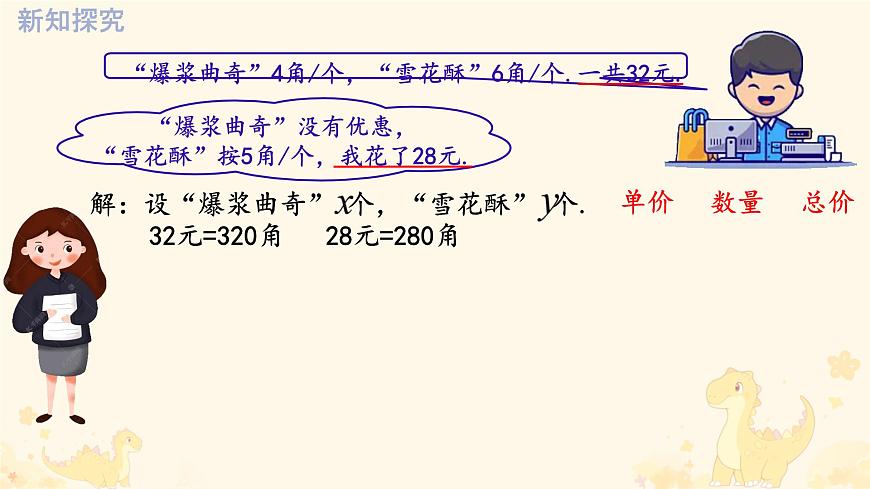 新知探究
“爆浆曲奇”4角/个，“雪花酥”6角/个.一共32元.
“爆浆曲奇”没有优惠，
“雪花酥”按5角/个，我花了28元.
解：设“爆浆曲奇”x个，“雪花酥”y个.
单价 数量 总价
32元=320角 28元=280角